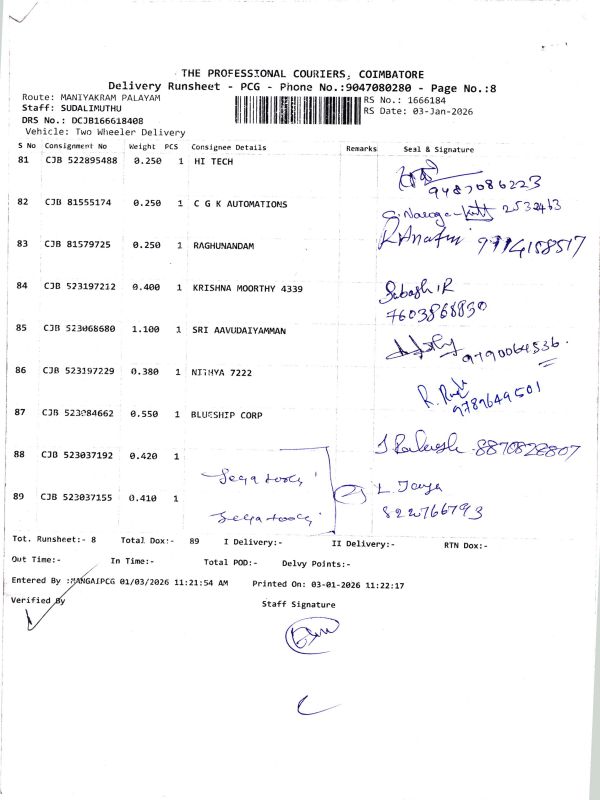 THE PROFESSIONAL COURIERS, COIMBATORE
Delivery Runsheet - PCG - Phone No.:9047080280 - Page No.:8
Route: MANIYAKRAM PALAYAM
Staff: SUDALIMUTHU
DRS No.: DCJB166618408
Vehicle: Two Wheeler Delivery
RS No.: 1666184
RS Date: 03-Jan-2026
S No Consignment No Weight PCS Consignee Details Remarks Seal & Signature
81 CJB 522895488 0.250 1 HI TECH
9487086223
82 CJB 81555174 0.250 1 C G K AUTOMATIONS
2532463
83 CJB 81579725 0.250 1 RAGHUNANDAM
84 CJB 523197212 0.400 1 KRISHNA MOORTHY 4339 Subash.R
7603868830
85 CJB 523068680 1.100 1 SRI AAVUDAIYAMMAN
9790064536.
86 CJB 523197229 0.380 1 NITHYA 7222
9789649501
87 CJB 523084662 0.550 1 BLUESHIP CORP
8870828807
88 CJB 523037192 0.420 1
89 CJB 523037155 0.410 1 L. Jaya
Tot. Runsheet:- 8 Total Dox:- 89 I Delivery:- II Delivery:- RTN Dox:-
Out Time:- In Time:- Total POD:- Delvy Points:-
Entered By :MANGAIPCG 01/03/2026 11:21:54 AM Printed On: 03-01-2026 11:22:17
Verified By
Staff Signature